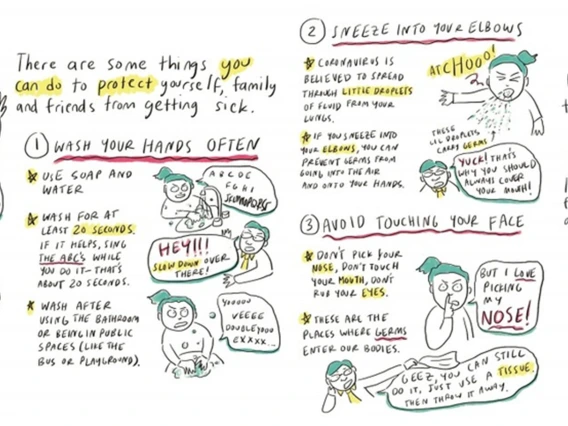 There are some things you
can do to protect yourself, family
and friends from getting sick.
1 WASH YOUR HANDS OFTEN
USE SOAP AND
WATER
WASH FOR AT
LEAST 20 SECONDS.
IF IT HELPS, SING
THE ABC'S WHILE
YOU DO IT - THAT'S
ABOUT 20 SECONDS.
WASH AFTER
USING THE BATHROOM
OR BEING IN PUBLIC
SPACES (LIKE THE
BUS OR PLAYGROUND).
A B C D E
F G H I
HEY!!!
SLOW DOWN OVER
THERE!
YOUUUU
VEEEE
DOUBLEYOUU
EXXXX...
2 SNEEZE INTO YOUR ELBOWS
CORONAVIRUS IS
BELIEVED TO SPREAD
THROUGH LITTLE DROPLETS
OF FLUID FROM YOUR
LUNGS.
IF YOU SNEEZE INTO
YOUR ELBOWS, YOU CAN
PREVENT GERMS FROM
GOING INTO THE AIR
AND ONTO YOUR HANDS.
ATCHOOO!
THESE
LIL DROPLETS
CARRY GERMS
YUCK! THAT'S
WHY YOU SHOULD
ALWAYS COVER
YOUR MOUTH!
3 AVOID TOUCHING YOUR FACE
DON'T PICK YOUR
NOSE, DON'T TOUCH
YOUR MOUTH, DON'T
RUB YOUR EYES.
THESE ARE THE
PLACES WHERE GERMS
ENTER OUR BODIES.
BUT I LOVE
PICKING
MY
NOSE!
GEEZ, YOU CAN STILL
DO IT, JUST USE A TISSUE.
THEN THROW IT AWAY.